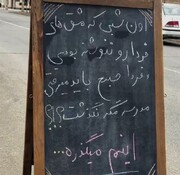 اون شبی که مشق های
فردا رو ننوشته بودی
و فردا صبح باید میرفتی
مدرسه مگه نگذشت؟؟!
اینم میگذره...